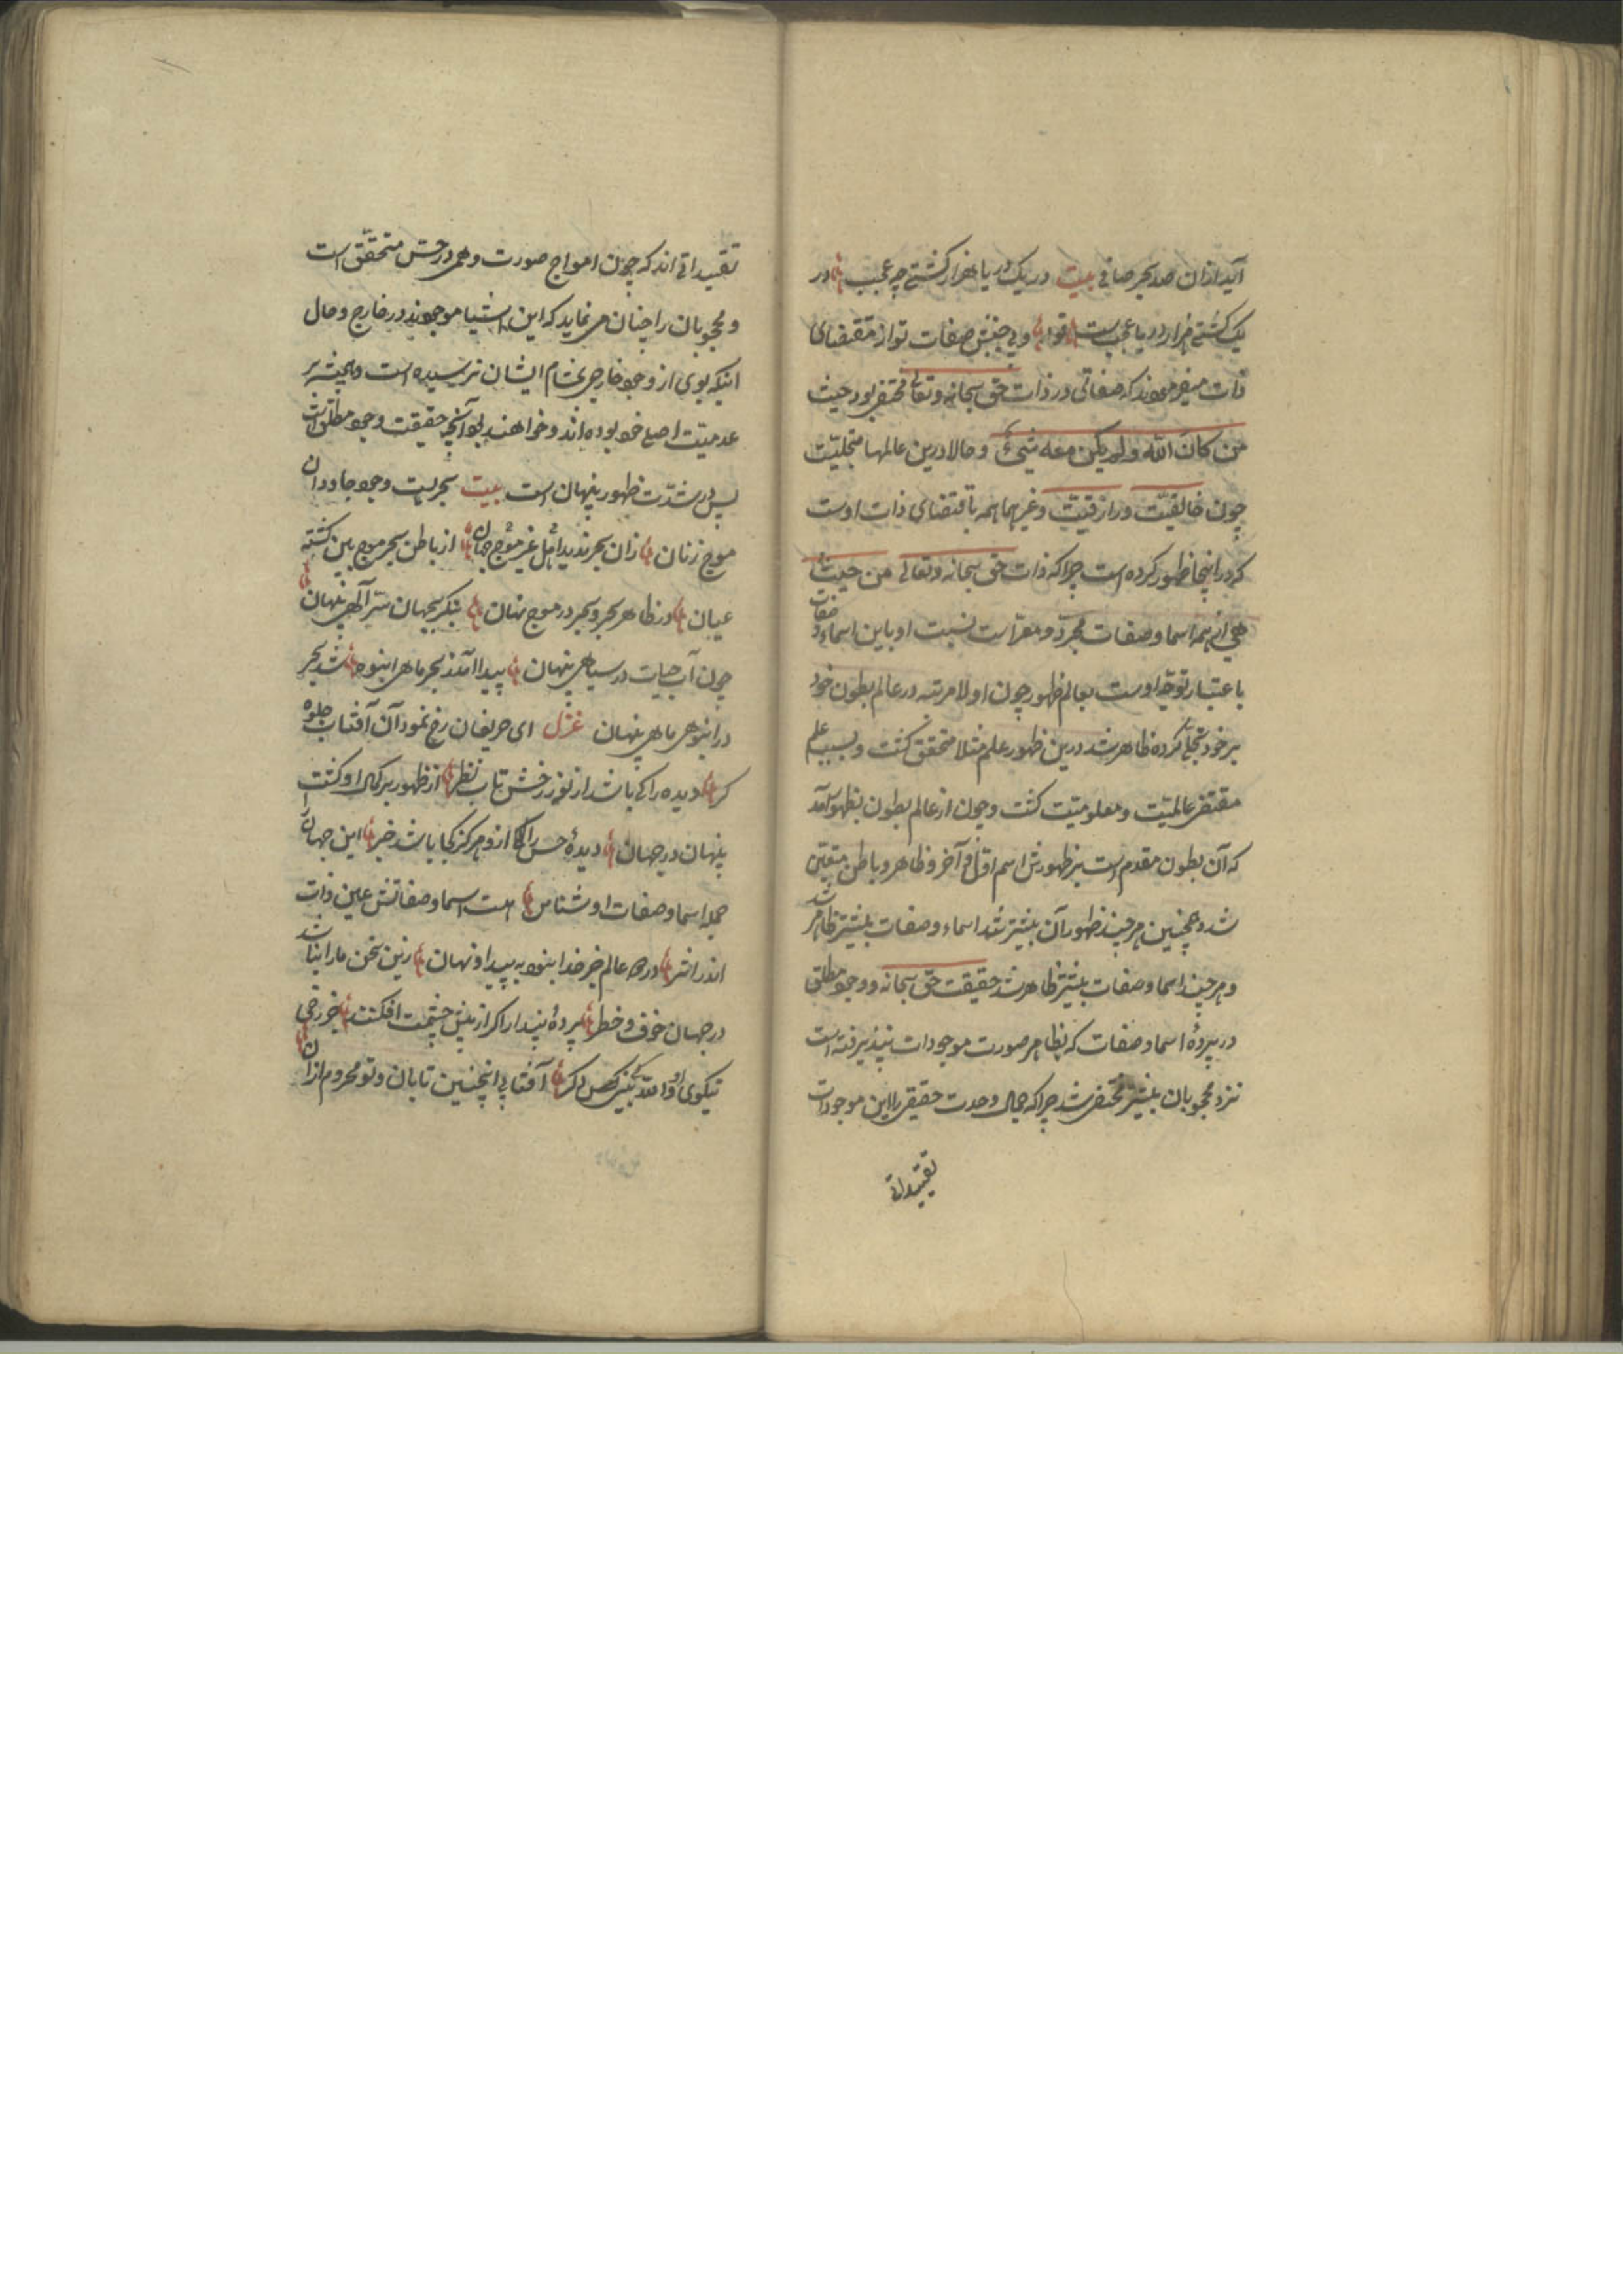 آید ازان صد بحر صافی بیت در یک دریا هزار کشتی چه عجب در
یک کشتی هزار دریا عجبست قوله وی جنبش صفات تو از مقتضای
ذات میفرمودند که صفاتی در ذات حق سبحانه وتعالی مختفی بود حیث
من کان الله ولم یکن معه شیء وحالا درین عالمها متجلیست
چون خالقیت ورازقیت وغیرهما همه باقتضای ذات اوست
که در اینجا ظهور کرده است چرا که ذات حق سبحانه وتعالی من حیث
هی از همه اسما وصفات مجرد ومعراست نسبت او باین اسماء وصفات
باعتبار توجه اوست بعالم ظهور چون اولا مرتبه در عالم بطون خود
بر خود تجلی کرده ظاهر شد درین ظهور علم مثلا متحقق کشت وبسبب علم
مقتضی عالمیت ومعلومیت کشت وچون از عالم بطون بظهور آمد
که آن بطون مقدم است بر ظهورش اسم اول وآخر وظاهر وباطن متعین
شد وهمچنین هر چند ظهور آن بیشتر شد اسماء وصفات بیشتر ظاهر شد
وهر چند اسما وصفات بیشتر ظاهر شد حقیقت حق سبحانه ووجود مطلق
در پردهٔ اسما وصفات که بظاهر صورت موجودات پذیرفته است
نزد محجوبان بیشتر مختفی شد چرا که جمال وحدت حقیقی را این موجودات
تقییداتی
تقییداتی اند که چون امواج صورت وهمی در حس متحقق است
ومحجوبان را چنان می نماید که این اشیا موجودند در خارج وحال
اینکه بوی از وجود خارجی بمشام ایشان نرسیده است وهمیشه بر
عدمیت اصلی خود بوده اند وخواهند بود آنچه حقیقت وجود مطلق است
پس در شدت ظهور پنهان است بیت بحریست وجود جاودان
موج زنان زان بحر ندیده اهل جهان غیر موج از باطن بحر موج بین کشته
عیان در ظاهر بحر وبحر در موج نهان بنکر بجهان سر الهی پنهان
چون آب حیات در سیاهی پنهان پیدا آمد ز بحر ماهی انبوه شد بحر
در انبوهی ماهی پنهان غزل ای حریفان رخ نمود آن آفتاب جلوه
کر دیده را کی باشد از نور رخش تاب نظر از ظهور بر کمال او کشت
پنهان در جهان دیدهٔ حس را ازو هرکز کجا باشد خبر این جهان را
جمله اسما وصفات او شناس هست اسما وصفاتش عین ذات
اندر اثر در همه عالم جز خدا نبود به پیدا ونهان زین سخن مارا نباشد
در جهان خوف وخطر پردهٔ پندار اکر از پیش چشمت افکنند جز رخ
نیکوی او والله نبینی کس دکر آفتابی اینچنین تابان وتو محروم ازان